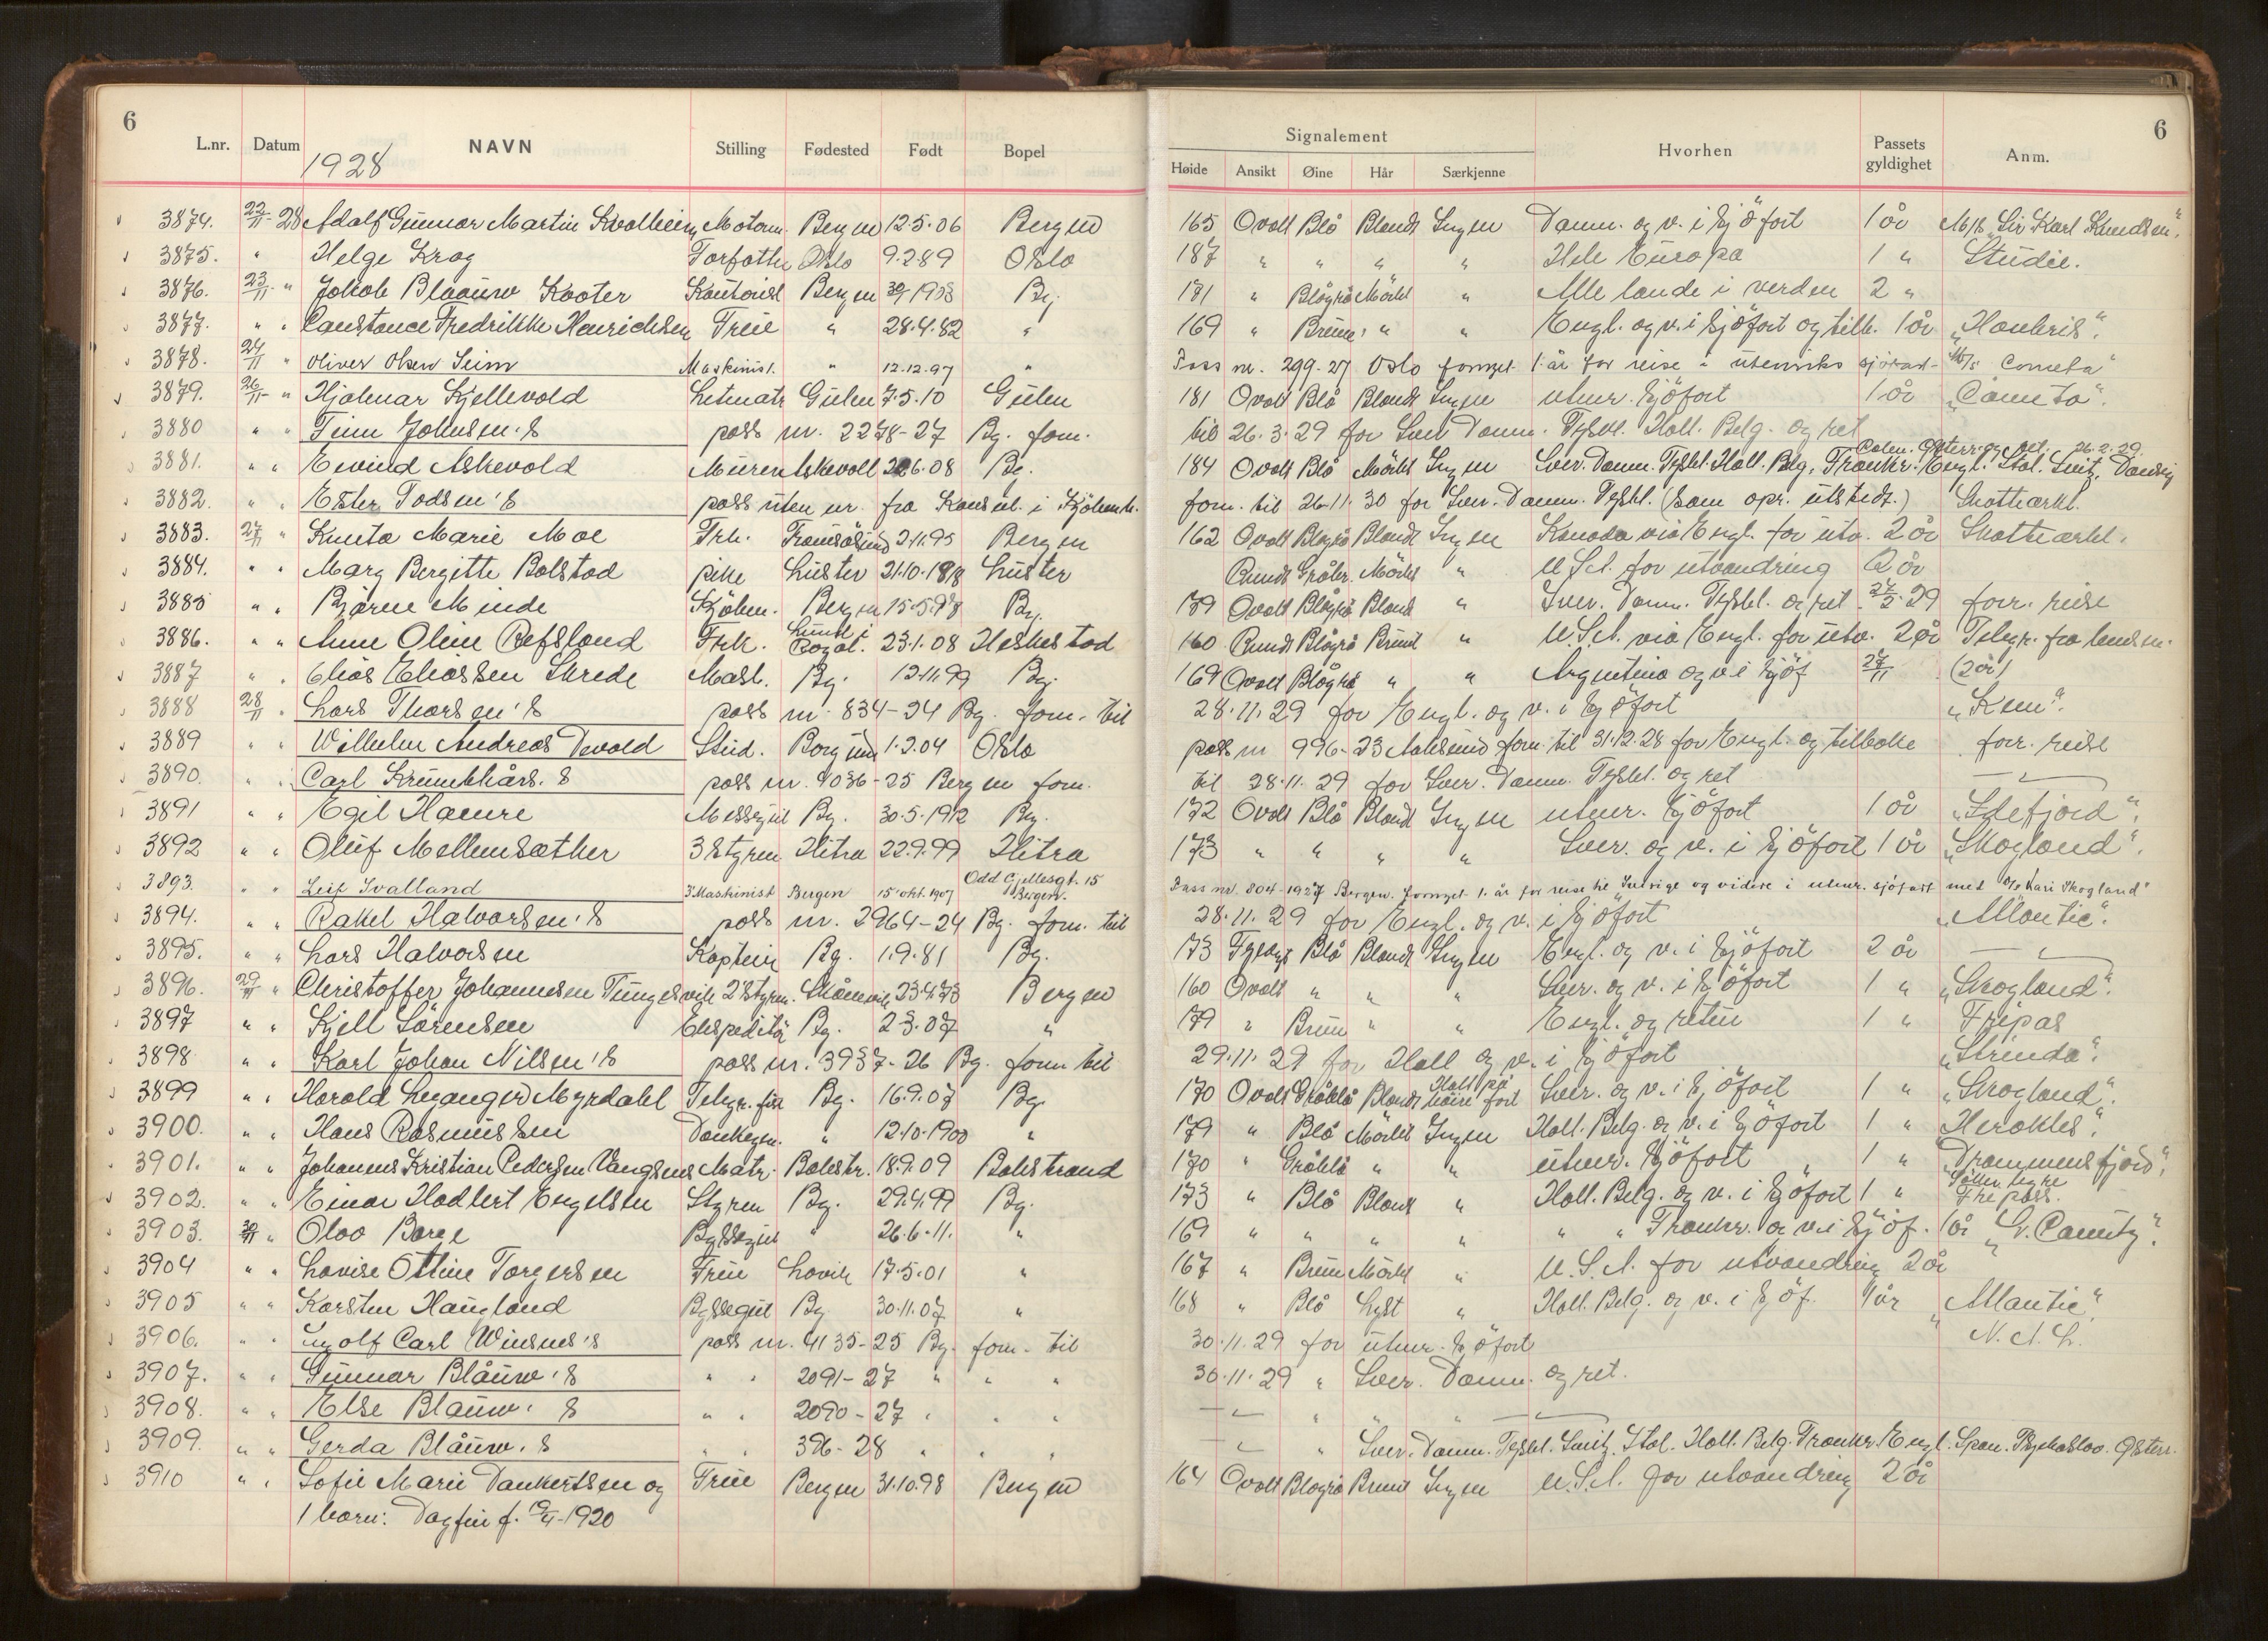 6
L.nr. Datum NAVN Stilling Fødested Født Bopel
1928
3874. 22/11-28 Adolf Gunnar Martin Kvalheim Motorm. Bergen 12.5.06 Bergen
3875. " Helge Krog Forfatter Oslo 9.2.89 Oslo
3876. 23/11 " Jakob Blaauw Kooter Kontorist Bergen 30/1 1908 Bg.
3877. " " Constance Fredrikke Henrichsen Frue " 28.4.82 "
3878. 24/11 " Oliver Olsen Seim Maskinist. " 12.12.97 "
3879. 26/11 " Hjalmar Kjellevold Letmatr Gulen 7.5.10 Gulen
3880 " " Finn Johnsen's pass nr. 2278-27 Bg. forn.
3881. " " Eivind Askevold Murer Askevoll 6.08 Bg.
3882. " " Ester Todsen's pass uten nr. fra Konsul. i Kjöbenh.
3883. 27/11 " Kunta Marie Moe Frk. 2.11.95 Bergen
3884. " " Marg Bergitte Bolstad pike Luster 21.10.1898 Luster
3885 " " Bjarne Minde Kjøbm. Bergen 15.5.98 Bg.
3886. " " Anne Oline Refsland Frk. Lund i Rogal. 23.1.08 Heskestad
3887 " " Elias Eliassen Skrede Mask. Bg. 12.11.99 Bg.
3888 28/11 " Lars Thorsen's pass nr. 834-24 Bg. forn. til
3889 " " Wilhelm Andreas Devold Stud. Borgund 1.2.04 Oslo
3890. " " Carl Krumkhårs.s pass nr. 4036-25 Bergen forn.
3891 " " Egil Hamre Messegut Bg. 30.5.1912 Bg.
3892 " " Oluf Mellemsæther 3 Styrm. Hitra 22.9.99 Hitra
3893. " " Leif Svalland 3' Maskinist Bergen 15' okt. 1907 Odd Gjellesgt. 15 Bergen.
3894. " " Rakel Halvorsen's pass nr. 2964-24 Bg. forn. til
3895. " " Lars Halvorsen Kaptein Bg. 1.9.81 Bg.
3896. 29/11 " Christoffer Johannesen Tungesvik 2 Styrm. Skånevik 23.4.73 Bergen
3897 " " Kjell Sörensen Ekspeditör Bg. 2.3.07 "
3898 " " Karl Johan Nilsen's pass nr. 3937-26 Bg. forn til
3899 " " Harald Leganger Myrdahl Telegr. Bg. 16.9.07 Bg.
3900. " " Hans Rasmussen Donkeym. " 12.10.1900 "
3901. " " Johannes Kristian Pedersen Vangsnes Matr. Balestr. 18.9.09 Balestrand
3902. " " Einar Hadlert Engelsen Styrm Bg. 29.4.99 Bg.
3903. 30/11 " Olav Borge Byssegut " 26.6.11. "
3904 " " Lovise Ottine Torgersen Frue Lavik 17.5.01 "
3905 " " Karsten Haugland Byssegut Bg. 30.11.07 "
3906. " " Ingolf Carl Winsnes's pass nr. 4135-25 Bg. forn. til
3907. " " Gunnar Blåuw's " " 2091-27 " " "
3908. " " Else Blåuw's " " 2090-27 " " "
3909. " " Gerda Blåuw.s " " 396-28 " " "
3910 " " Sofie Marie Dankertsen og Frue Bergen 31.10.98 Bergen
1 barn: Dagfin f. 1920
6
Signalement Hvorhen Passets gyldighet Anm.
Høide Ansikt Øine Hår Særkjenne
165 Ovalt Blå Blondt Ingen Danm. og v. i Sjöfart 1 år M/S „Sir Karl Knudsen".
187 " " " " Hele Europa 1 " Studie.
181 " Blågrå Mörkt " Alle lande i verden 2 "
169 " Brune " " Engl. og v. i Sjöfart og tilb. 1 år „Haukris".
Pass nr. 299-27 Oslo fornyet 1 år for reise i utenriks sjöfart M/s Cometa"
181 Ovalt Blå Blondt Ingen utenr. Sjöfart 1 år „Cometa".
til 26.3.29 for Sver Danm. Tyskl. Holl. Belg. og ret
184 Ovalt Blå Mörkt Ingen Sver. Danm. Tyskl. Holl. Belg. Frankr. Engl. Ital. Østerr. og ret. 26.2.29
forn. til 26.11.30 for Sver. Danm. Tyskl. (som opr. utstedt.) Skatteerkl.
162 Ovalt Blågrå Blondt Ingen Kanada via Engl. for utv. 2 år Skatteerkl.
Rundt Gråbr. Mörkt " U.S.A. for utvandring 2 år
179 Ovalt Blågrå Blond " Sver. Danm. Tyskl. og ret 27/2.29 forr. reise
160 Rundt Blågrå Brunt " U.S.A. via Engl. for utv. 2 år Telegr. fra lensm.
169 Ovalt Blågrå " " Argentina og v. i Sjöf 27/11 (2 år)
28.11.29 for Engl. og v. i Sjöfart „Kem".
pass nr 996-23 Aalesund forn til 31.12.28 for Engl. og tilbake forr. reise
til 28.11.29 for Sver. Danm. Tyskl. og ret — " —
172 Ovalt Blå Blondt Ingen utenr. Sjöfart 1 år „Idefjord".
173 " " " " Sver. og v. i Sjöfart 1 år „Skogland".
Pass nr. 804-1927 Bergen. fornyet 1. år for reise til Sverige og videre i utenr. sjöfart med S/s Kari Skogland"
28.11.29 for Engl. og v. i Sjöfart „Atlantic".
173 Fyldigt Blå Blondt Ingen Engl. og v. i Sjöfart 2 år — " —
160 Ovalt " " " Sver. og v. i Sjöfart 1 " „Skogland".
179 " Brun " " Engl. og retur 1 " Fripas
29.11.29 for Holl og v. i Sjöfart „Strinda".
170 Ovalt Gråblå Blondt Halt på höire fort Sver. og v. i Sjöfart 1 " „Skogland".
179 " Blå Mörkt Ingen Holl. Belg. og v. i Sjöfart 1 " „Herakles".
170 " Gråblå " " utenr. Sjöfart 1 " „Drammensfjord".
173 " Blå Blondt " Holl. Belg. og v. i Sjöfart 1 " Fripass.
169 " " " " " " Frankr. og v. i Sjöf. 1 år
167 " Brun Mörkt " U.S.A. for utvandring 2 år
168 " Blå Lyst " Holl. Belg. og v. i Sjöf. 1 år „Atlantic".
30.11.29 for utenr. Sjöfart N.A.L.
30.11.29 " Sver. Danm. og ret.
— " — " " " — " —
— " — " Sver. Danm. Tyskl. Svitz. Ital. Holl. Belg. Frankr. Engl. Span. Østerr.
164 Ovalt Blågrå Brunt Ingen U.S.A. for utvandring 2 år